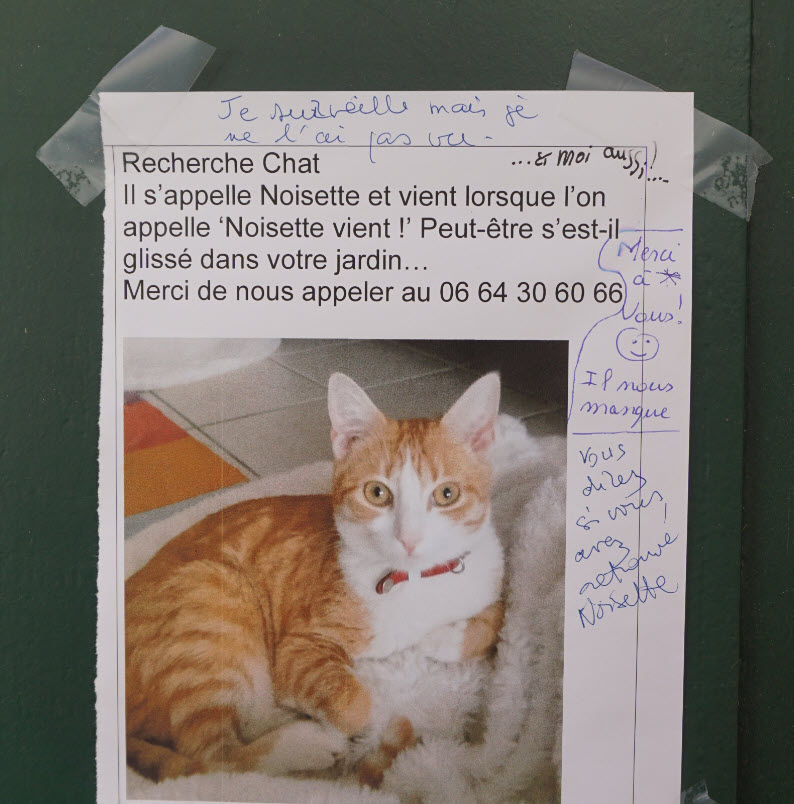 Je surveille mais je
ne l'ai pas vu -
...& moi aussi!...
Recherche Chat
Il s'appelle Noisette et vient lorsque l'on
appelle ‘Noisette vient !’ Peut-être s'est-il
glissé dans votre jardin…
Merci de nous appeler au 06 64 30 60 66
Merci
à
Vous!
Il nous
manque
vous
direz
si vous
avez
retrouvé
Noisette